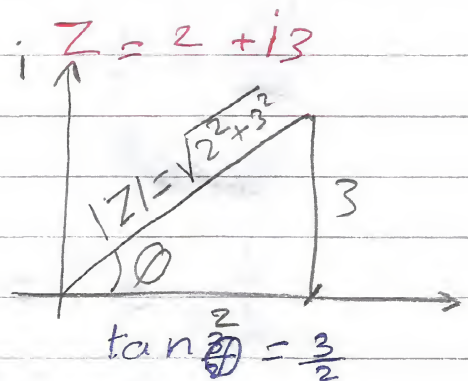 Z = 2 + i3
i
|Z| = √2² × 3²
3
θ
2
tan θ = 3/2